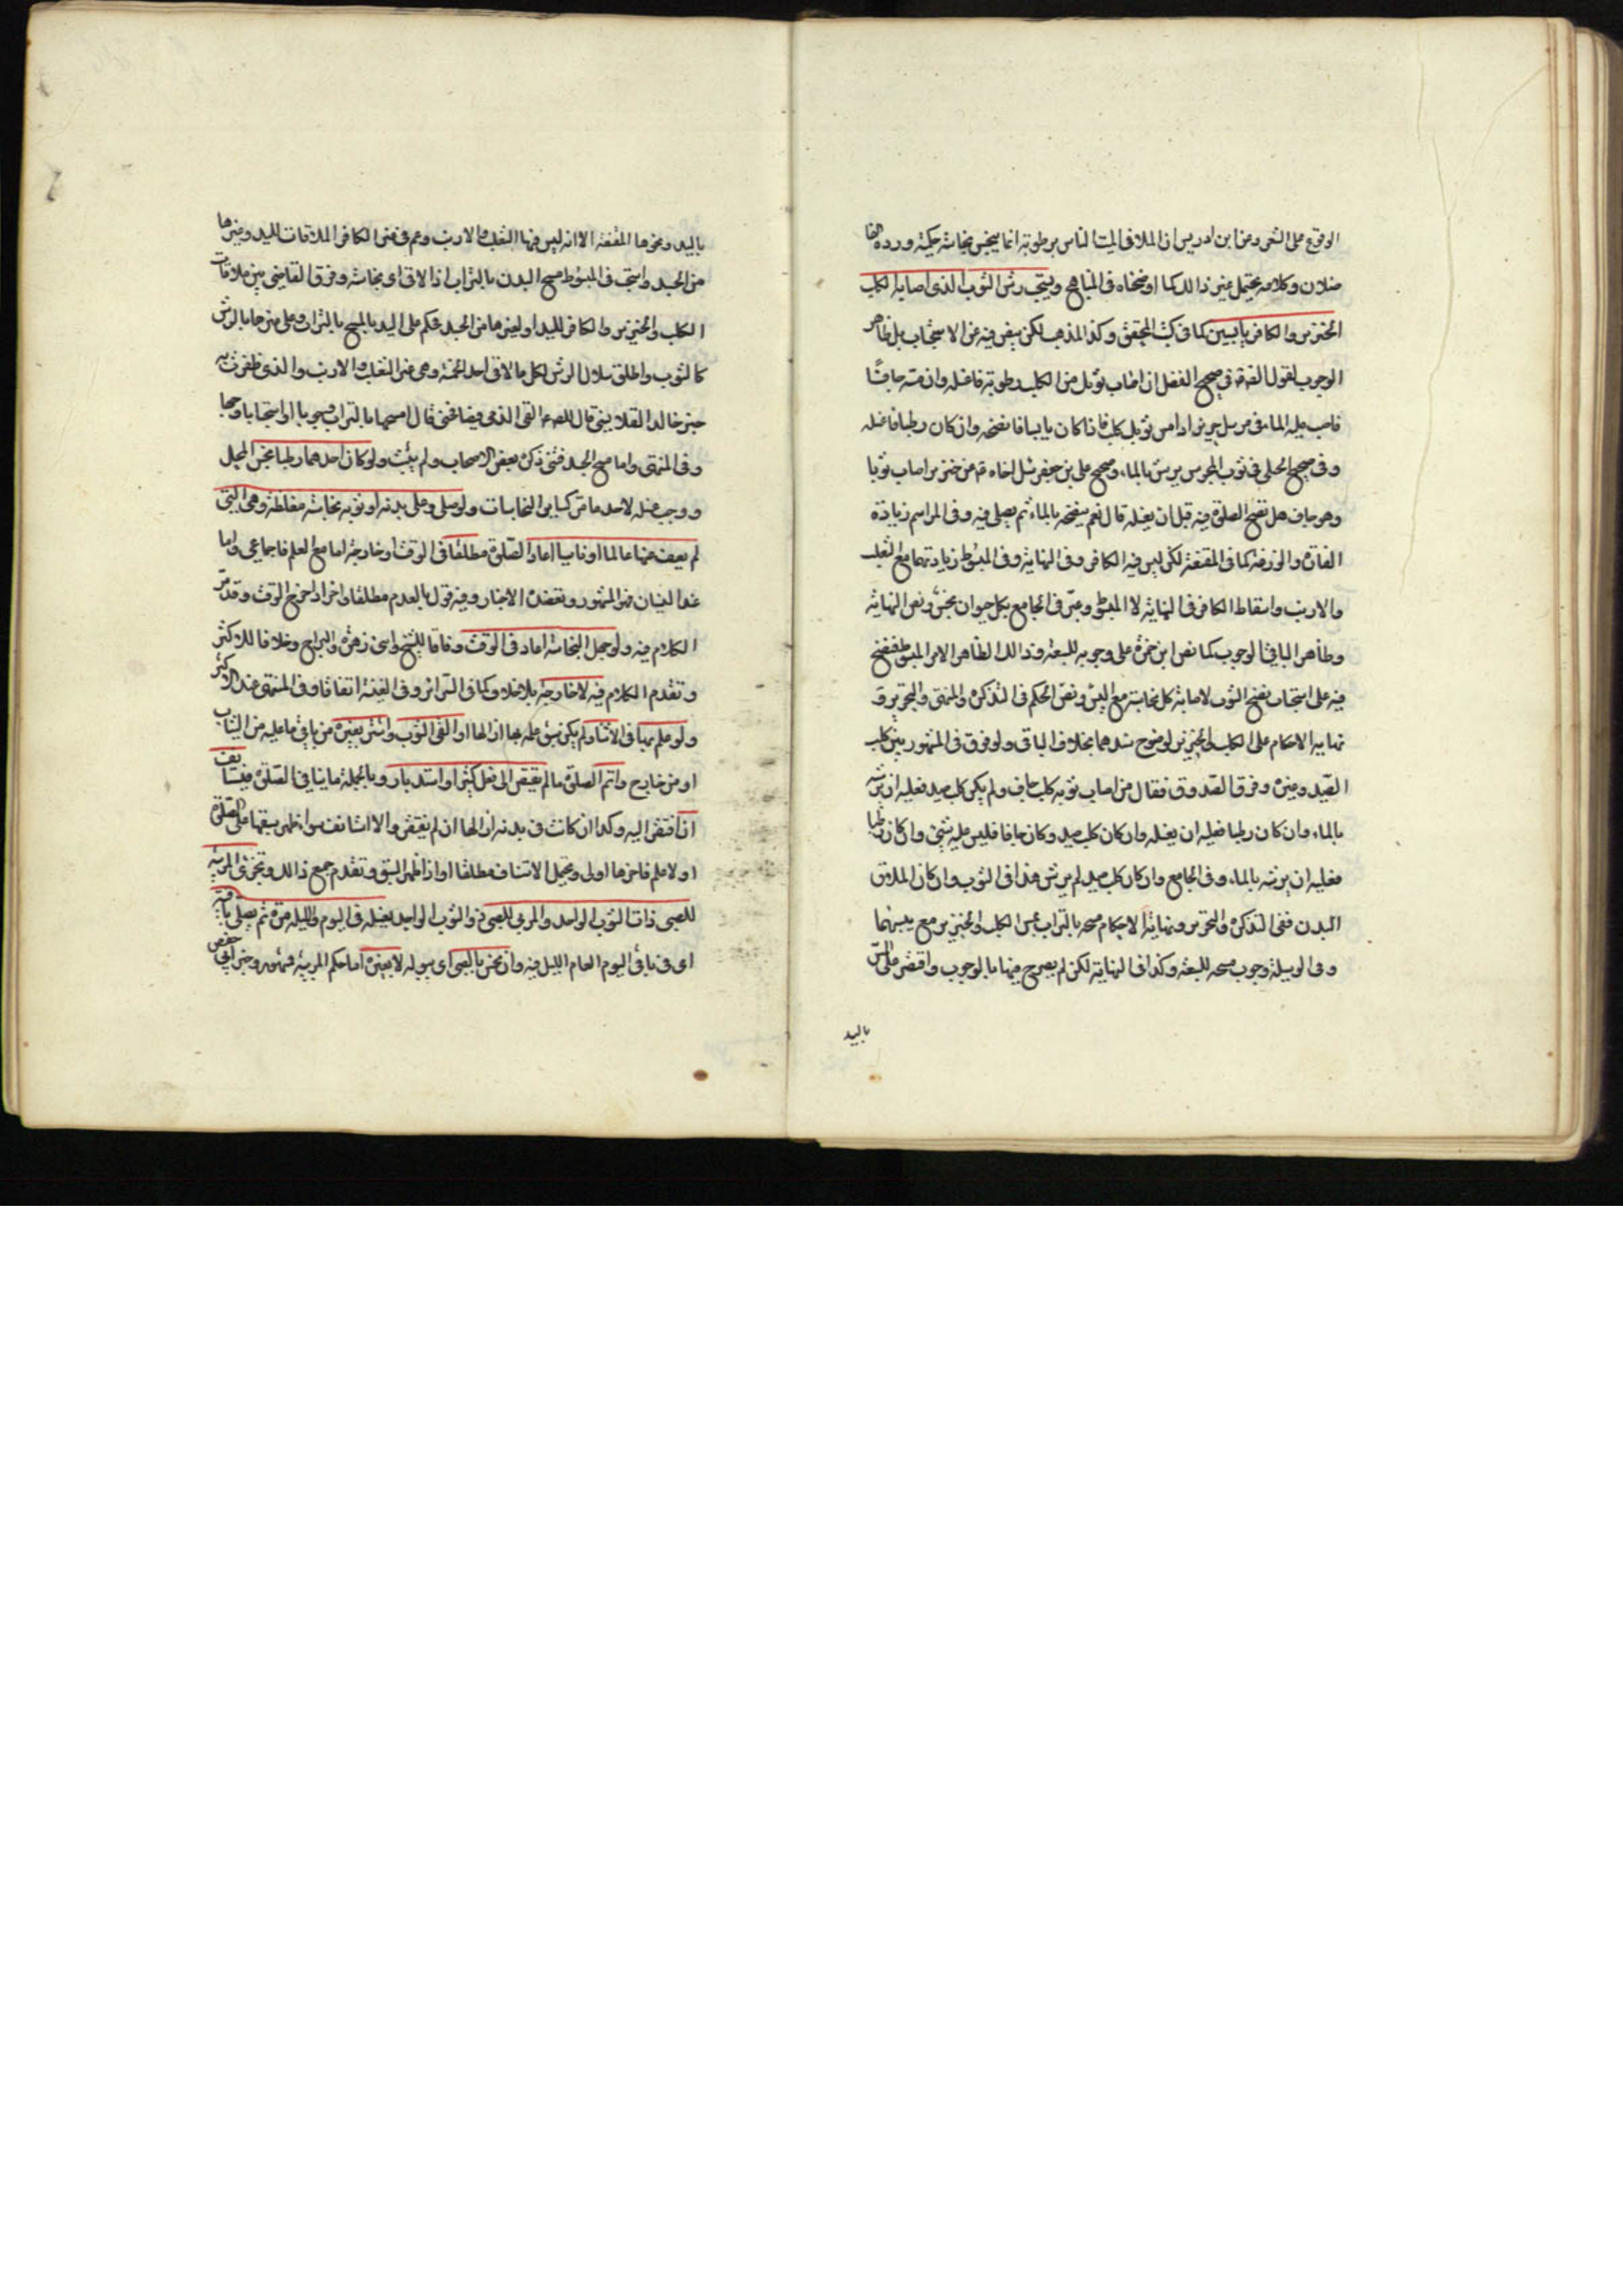 الوقوع على الشئ وعن ابن ادريس ان الملاقى الميت الناس برطوبة انما ينجس نجاسة حكمية ورده
وكلامه يحتمل غير ذالك كما اوضحناه فى المناهج ويستحب رش الثوب الذى اصابه الكلب
الخنزير والكافر يابسين كما فى كتب المحقق وكذا المذهب لكن فيه عن الاستحباب بل ظاهر
الوجوب لقول الصادق فى صحيح الفضل ان اصاب ثوبك من الكلب رطوبة فاغسله وان مسه جافا
فاصبب عليه الماء وفى مرسل حريز اذا مس ثوبك كلب فاذا كان يابسا فانضحه وان كان رطبا فاغسله
وفى صحيح الحلبى فى ثوب المجوس يرش بالماء وصحيح على بن جعفر سئل اخاه عن خنزير اصاب ثوبا
وهو جاف هل تصح الصلوة فيه قبل ان يغسله قال نعم ينضحه بالماء ثم يصلى فيه وفى المراسم زيادة
الفارة والوزغة كما فى المقنعة لكن ليس فيه الكافر وفى النهاية وفى المبسوط زيادتهما مع الثعلب
والارنب واسقاط الكافر فى النهاية لا المبسوط وعبر فى الجامع بكل حيوان نجس ونص النهاية
وظاهر الباقى الوجوب كما نص ابن حمزة على وجوبه للسبعة وذالك الظاهر الامر المبسوط
فيه على استحباب نضح الثوب لاصابة كل نجاسة مع اليبس ونص الحكم فى التذكرة والمنتهى والتحرير و
نهاية الاحكام على الكلب والخنزير لوضوح سندهما بخلاف الباقى ولا فرق فى المشهور بين كلب
الصيد وغيره وفرق الصدوق فقال من اصاب ثوبه كلب جاف ولم يكن كلب صيد فعليه ان يرشه
بالماء وان كان رطبا فعليه ان يغسله وان كان كلب صيد وكان جافا فليس عليه شئ وان كان رطبا
فعليه ان يرشه بالماء وفى الجامع وان كان كلب صيد لم يرش هذا فى الثوب وان كان الملاقى
البدن ففى التذكرة والتحرير ونهاية الاحكام مسحه بالتراب من الكلب والخنزير مع يبسهما
وفى الوسيلة وجوب مسحه للسبعة وكذا فى النهاية لكن لم يصرح فيها بالوجوب واقتصر على المس
باليد
باليد ونحوها المقنعة الا انه ليس فيها الثعلب والارنب وعم فى الكافر الملاقات لليد وغيرها
من الجسد واستحب فى المبسوط مسح البدن بالتراب اذا لاقى اى نجاسة وفرق القاضى بين ملاقات
الكلب والخنزير والكافر لليد او لغيرها من الجسد فحكم على اليد بالمسح بالتراب وعلى غيرها بالرش
كالثوب واطلق سلار الرش لكل ما لاقى احد الخمسة وهى غير الثعلب والارنب والذى ظفرت به
خبر خالد القلانسى قال للصادق القى الذمى فيصافحنى قال امسحها بالتراب وجوبا او استحبابا
وفى المنتهى واما مسح الجسد فشئ ذكره بعض الاصحاب ولم يثبت ولو كان احدهما رطبا نجس المحل
ووجب غسله لاحد ما مر كسائر النجاسات ولو صلى وعلى بدنه او ثوبه نجاسة مغلظة وهى التى
لم يعف عنها عالما او ناسيا اعاد الصلوة مطلقا فى الوقت او خارجه اما مع العلم فاجماعى واما
عند النسيان فهو المشهور وتعضده الاخبار وفيه قول بالعدم مطلقا واخر اذا خرج الوقت وقد مر
الكلام فيه ولو جهل النجاسة اعاد فى الوقت وفاقا للشيخ وابنى زهرة والبراج وخلافا للاكثر
وتقدم الكلام فيه لا خارجه بلا خلاف كما فى السرائر وفى الغنية اتفاقا وفى المنتهى عند الاكثر
ولو علم بها فى الاثناء ولم يكن سبق علمه بها ازالها او القى الثوب واستتر بغيره من باقى ما عليه من الثياب
او من خارج واتم الصلوة ما لم يفتقر الى فعل كثير او استدبار وبالجملة ما ينافى الصلوة فيستانف
ان افتقر اليه وكذا ان كانت فى بدنه ازالها ان لم يفتقر والا استانف سواء علم سبقها على الصلوة
او لا علم فاخرها اولى ويحتمل الاستيناف مطلقا او اذا ظهر السبق وتقدم جميع ذالك وتجزى المربية
للصبى ذات الثوب الواحد والمربى للصبى ذو الثوب الواحد بغسله فى اليوم والليلة مرة ثم يصلى باقيه
اى فى باقى اليوم العام الليل فيه وان نجس بالصبى اى ببوله لا بغيره اما حكم المربية فمشهور وخبر ابى حفص